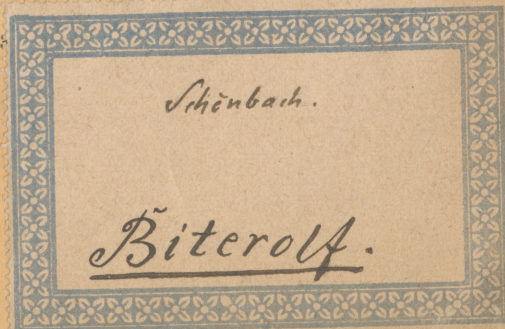 Schönbach.
Biterolf.